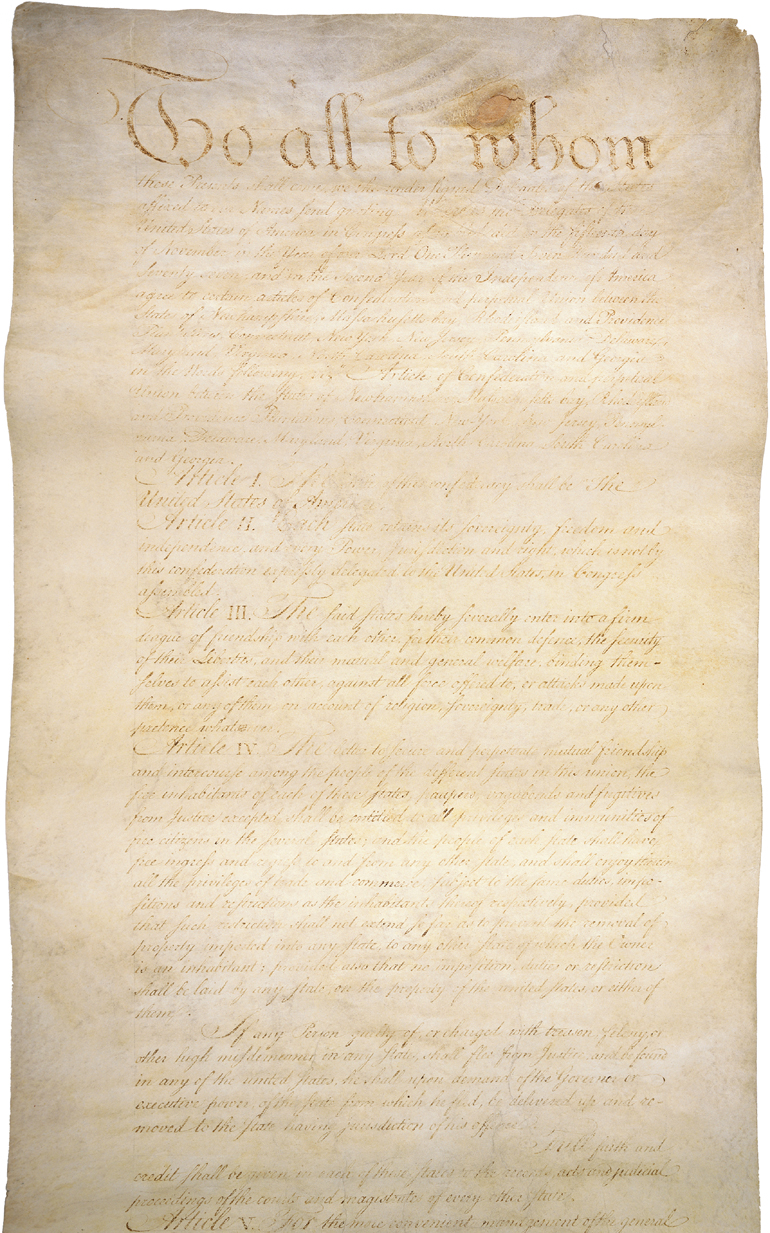 To all to whom
these Presents shall come, we the under signed Delegates of the States
affixed to our Names send greeting. Whereas the Delegates of the
United States of America in Congress assembled did on the fifteenth day
of November in the Year of our Lord One Thousand Seven Hundred and
Seventy seven, and in the Second Year of the Independence of America
agree to certain articles of Confederation and perpetual Union between the
States of Newhampshire, Massachusetts-bay, Rhodeisland and Providence
Plantations, Connecticut, New York, New Jersey, Pennsylvania, Delaware,
Maryland, Virginia, North-Carolina, South-Carolina and Georgia
in the Words following, viz. Articles of Confederation and perpetual
Union between the States of Newhampshire, Massachusetts-bay, Rhodeisland
and Providence Plantations, Connecticut, New-York, New-Jersey, Pennsyl-
vania, Delaware, Maryland, Virginia, North-Carolina, South-Carolina
and Georgia.
Article I. The Stile of this confederacy shall be "The
United States of America."
Article II. Each state retains its sovereignty, freedom and
independence, and every Power, Jurisdiction and right, which is not by
this confederation expressly delegated to the United States, in Congress
assembled.
Article III. The said states hereby severally enter into a firm
league of friendship with each other, for their common defence, the security
of their Liberties, and their mutual and general welfare, binding them-
selves to assist each other, against all force offered to, or attacks made upon
them, or any of them, on account of religion, sovereignty, trade, or any other
pretence whatever.
Article IV. The better to secure and perpetuate mutual friendship
and intercourse among the people of the different states in this union, the
free inhabitants of each of these states, paupers, vagabonds and fugitives
from Justice excepted, shall be entitled to all privileges and immunities of
free citizens in the several states; and the people of each state shall have
free ingress and regress to and from any other state, and shall enjoy therein
all the privileges of trade and commerce, subject to the same duties, impo-
sitions and restrictions as the inhabitants thereof respectively, provided
that such restriction shall not extend so far as to prevent the removal of
property imported into any state, to any other state of which the Owner
is an inhabitant; provided also that no imposition, duties or restriction
shall be laid by any state, on the property of the united states, or either of
them.
If any Person guilty of, or charged with treason, felony, or
other high misdemeanor in any state, shall flee from Justice, and be found
in any of the united states, he shall upon demand of the Governor or
executive power, of the state from which he fled, be delivered up and re-
moved to the state having jurisdiction of his offence.
Full faith and
credit shall be given in each of these states to the records, acts and judicial
proceedings of the courts and magistrates of every other state.
Article V. For the more convenient management of the general